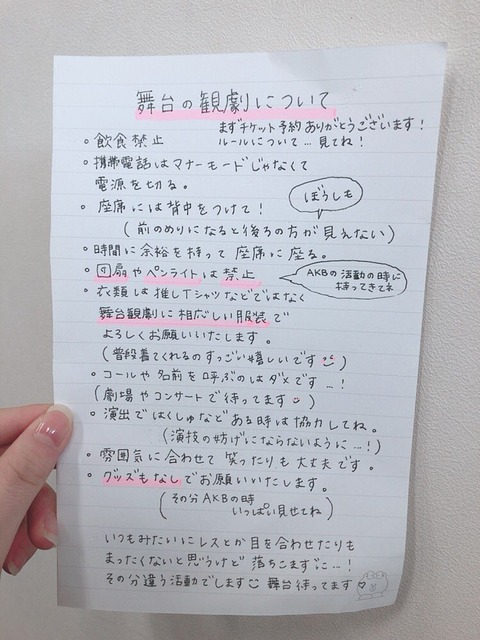 舞台の観劇について
まずチケット予約ありがとうございます!
ルールについて…見てね!
○ 飲食禁止
○ 携帯電話はマナーモードじゃなくて
電源を切る。
○ 座席には背中をつけて!
ぼうしも
(前のめりになると後ろの方が見えない)
○ 時間に余裕を持って座席に座る。
○ 団扇やペンライトは禁止
AKBの活動の時に
持ってきてネ
○ 衣類は推しTシャツなどではなく
舞台観劇に相応しい服装で
よろしくお願いいたします。
(普段着てくれるのすっごい嬉しいです)
○ コールや名前を呼ぶのはダメです…!
(劇場やコンサートで待ってます)
○ 演出ではくしゅなどある時は協力してね。
(演技の妨げにならないように…!)
○ 雰囲気に合わせて笑ったりも大丈夫です。
○ グッズもなしでお願いいたします。
(その分AKBの時
いっぱい見せてね)
いつもみたいにレスとか目を合わせたりも
まったくないと思うけど落ちこまずに…!
その分違う活動でします 舞台待ってます♡